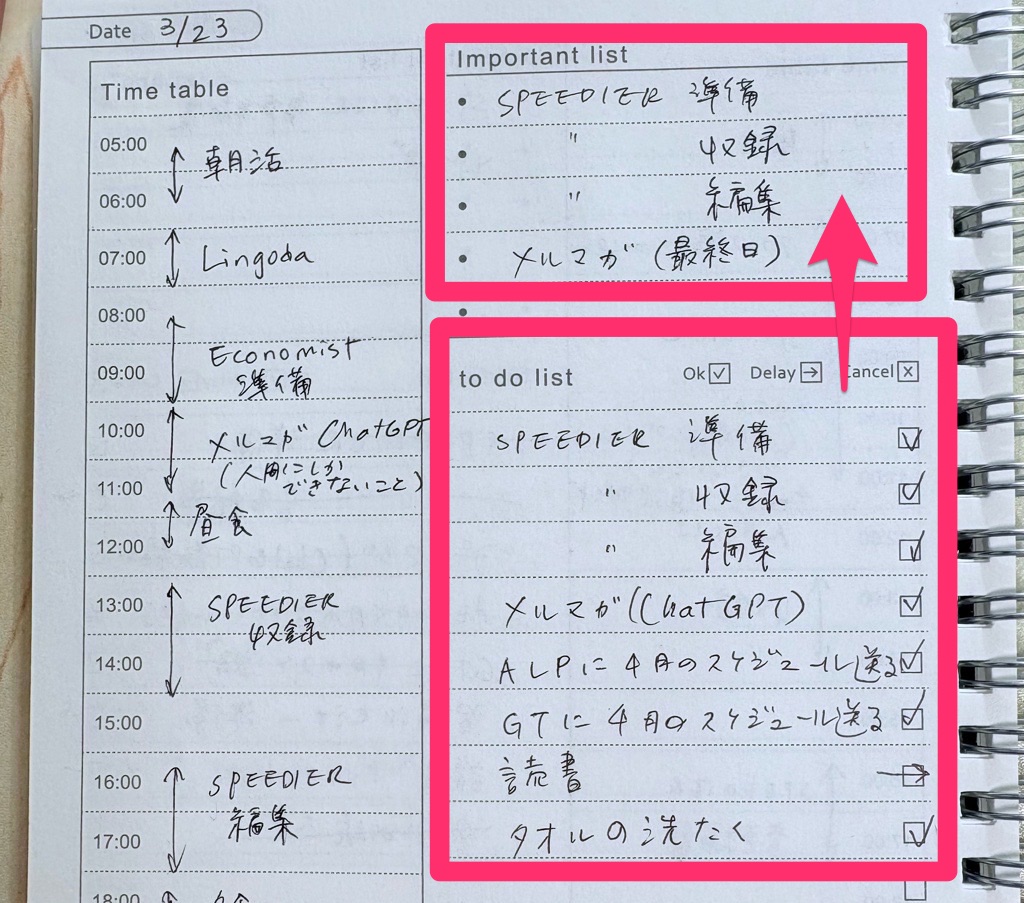 Date 3/23
Time table
05:00
朝活
06:00
07:00
Lingoda
08:00
Economist
09:00
準備
10:00
メルマガ ChatGPT
(人間にしか
11:00
できないこと)
昼食
12:00
13:00
SPEEDIER
収録
14:00
15:00
16:00
SPEEDIER
編集
17:00
18:00
Important list
• SPEEDIER 準備
• 〃 収録
• 〃 編集
• メルマガ (最終日)
•
to do list Ok ☑ Delay → Cancel x
SPEEDIER 準備 ☑
〃 収録 ☑
〃 編集 ☑
メルマガ(ChatGPT) ☑
ALPに4月のスケジュール送る ☑
GTに4月のスケジュール送る ☑
読書 →
タオルの洗たく ☑